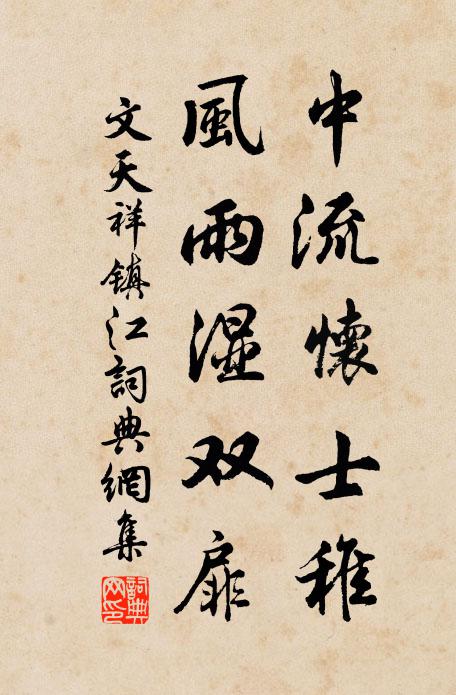 中流懷士稚
風雨湿双扉
文天祥镇江詞典網集
詞典
网印